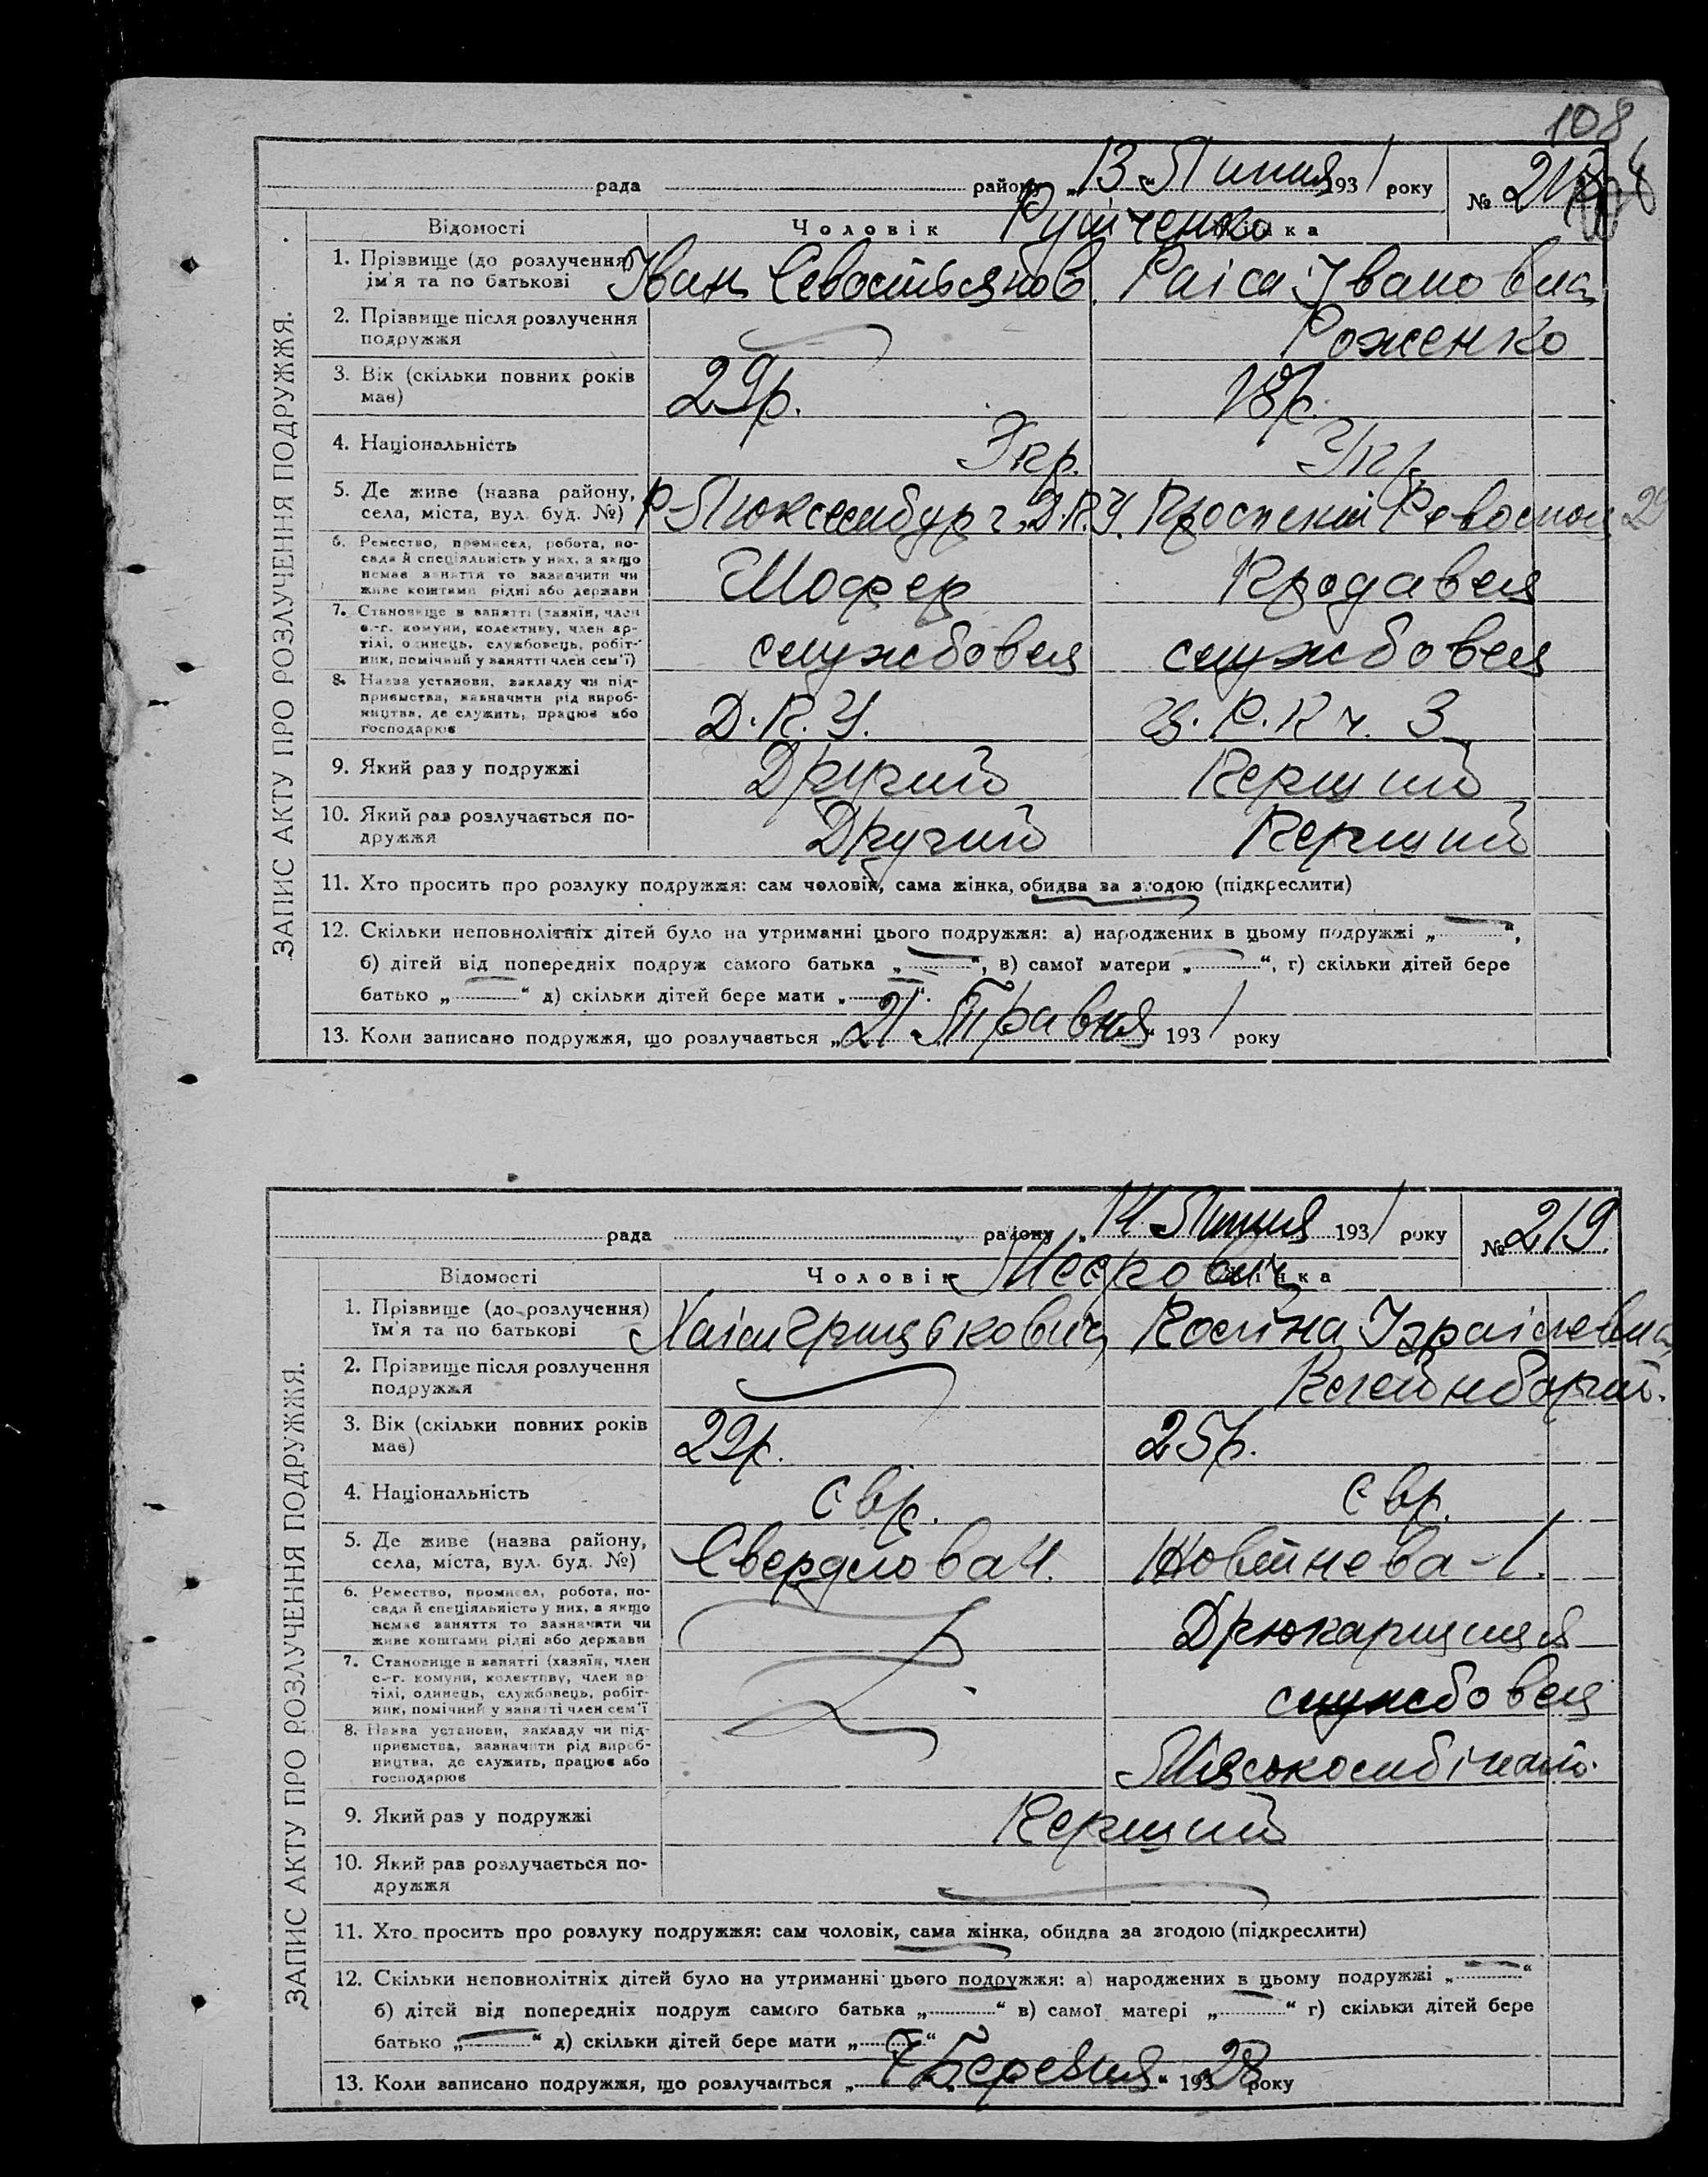 108
рада району „13“ Липня 1931 року № 218
ЗАПИС АКТУ ПРО РОЗЛУЧЕННЯ ПОДРУЖЖЯ.
Відомості Чоловік Жінка
1. Прізвище (до розлучення)
ім'я та по батькові
Іван Севастьянов. Раіса Івановна
2. Прізвище після розлучення
подружжя
Роженко
3. Вік (скільки повних років
має)
29р. 18р.
4. Національність
Укр. Укр.
5. Де живе (назва району,
села, міста, вул. буд. №)
Р-Люксембург, Д.П.У. Проспект 29
6. Ремество, промисел, робота, по-
сада й спеціяльність у них, а якщо
немає заняття то зазначити чи
живе коштами рідні або держави
Шофер Продавец
7. Становище в занятті (хазяїн, член
с.-г. комуни, колективу, член ар-
тілі, одинець, службовець, робіт-
ник, помічний у занятті член сем'ї)
службовец службовец
8. Назва установи, закладу чи під-
приємства, зазначити рід вироб-
ництва, де служить, працює або
господарює
Д.П.У. Ц.Р.К ч. 3
9. Який раз у подружжі
Другий Перший
10. Який раз розлучається по-
дружжя
Другий Перший
11. Хто просить про розлуку подружжя: сам чоловік, сама жінка, обидва за згодою (підкреслити)
12. Скільки неповнолітніх дітей було на утриманні цього подружжя: а) народжених в цьому подружжі „—“,
б) дітей від попередніх подруж самого батька „—“, в) самої матери „—“, г) скільки дітей бере
батько „—“ д) скільки дітей бере мати „—“.
13. Коли записано подружжя, що розлучається „21“ Травня 1931 року
рада району „14“ Липня 1931 року № 219.
ЗАПИС АКТУ ПРО РОЗЛУЧЕННЯ ПОДРУЖЖЯ.
Відомості Чоловік Жінка
1. Прізвище (до розлучення)
їм'я та по батькові
Хаім Грицькович Ізраілевна
2. Прізвище після розлучення
подружжя
3. Вік (скільки повних років
має)
29р. 25р.
4. Національність
Євр. Євр.
5. Де живе (назва району,
села, міста, вул. буд. №)
Свердлова 4. Жовтнева-1.
6. Ремество, промисел, робота, по-
сада й спеціяльність у них, а якщо
немає заняття то зазначати чи
живе коштами рідні або держави
Дрюкарщиця
7. Становище в занятті (хазяїн, член
с.-г. комуни, колективу, член ар-
тілі, одинець, службовець, робіт-
ник, помічний у занятті член сем'ї
службовец
8. Назва установи, закладу чи під-
приємства, зазначити рід вироб-
ництва, де служить, працює або
господарює
9. Який раз у подружжі
Перший
10. Який раз розлучається по-
дружжя
11. Хто просить про розлуку подружжя: сам чоловік, сама жінка, обидва за згодою (підкреслити)
12. Скільки неповнолітніх дітей було на утриманні цього подружжя: а) народжених в цьому подружжі „—“
б) дітей від попередніх подруж самого батька „—“ в) самої матері „—“ г) скільки дітей бере
батько „—“ д) скільки дітей бере мати „—“
13. Коли записано подружжя, що розлучається „7“ Березня 19328 року